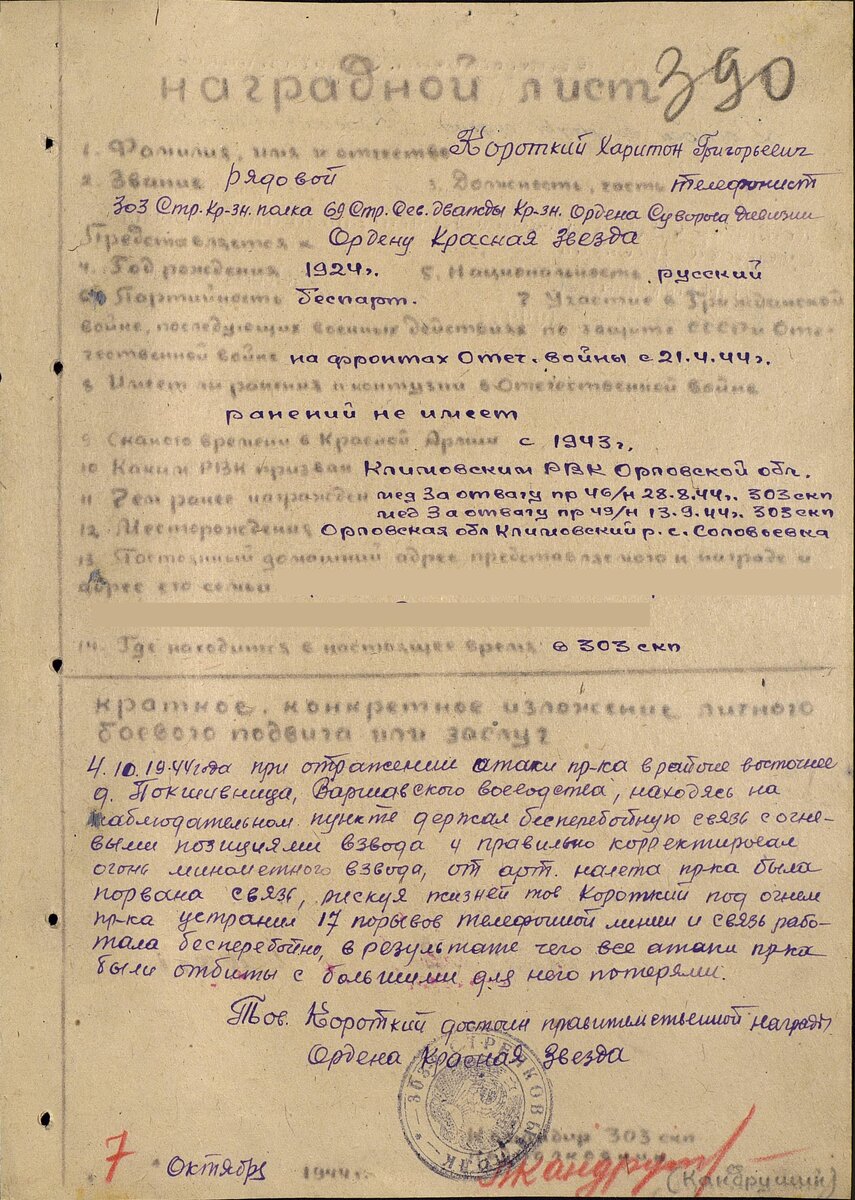 наградной лист 390
1. Фамилия, имя и отчество Короткий Харитон Григорьевич
2. Звание рядовой 3. Должность, часть телефонист
303 Стр. Кр-зн. полка 69 Стр. Сев. дважды Кр-зн. Ордена Суворова дивизии
Представляется к Ордену Красная Звезда
4. Год рождения 1924г. 5. Национальность русский
6. Партийность беспарт. 7 Участие в Гражданской
войне, последующих военных действиях по защите СССР и Оте-
чественной войне на фронтах Отеч. войны с 21.4.44г.
8 Имеет ли ранения и контузии в Отечественной войне
ранений не имеет
9 С какого времени в Красной Армии с 1943г.
10 Каким РВК призван Климовским РВК Орловской обл.
11 Чем ранее награжден мед За отвагу пр 46/н 28.8.44г. 303 скп
мед За отвагу пр 49/н 13.9.44г. 303 скп
12. Месторождения Орловская обл Климовский р. с. Соловьевка
13 Постоянный домашний адрес представляемого к награде и
адрес его семьи
14. Где находится в настоящее время в 303 скп
краткое, конкретное изложение личного
боевого подвига или заслуг
4.10.1944 года при отражении атаки пр-ка в районе восточнее
д. Покшивница, Варшавского воеводства, находясь на
наблюдательном пункте держал бесперебойную связь с огне-
выми позициями взвода и правильно корректировал
огонь минометного взвода, от арт. налета пр-ка была
порвана связь, рискуя жизней тов Короткий под огнем
пр-ка устранил 17 порывов телефонной линии и связь рабо-
тала бесперебойно, в результате чего все атаки пр-ка
были отбиты с большими для него потерями.
Тов. Короткий достоин правительственной награды
Ордена Красная Звезда
303 СТРЕЛКОВЫЙ ПОЛК
Командир 303 скп
7 Октября 1944г.
(Кандруций)